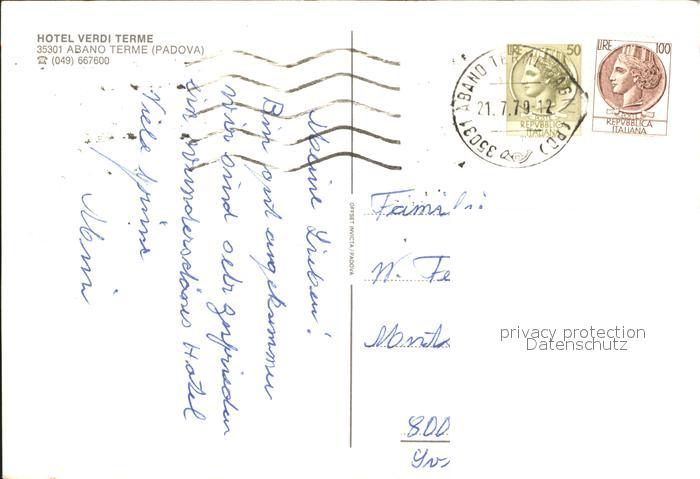 HOTEL VERDI TERME
35301 ABANO TERME (PADOVA)
☎ (049) 667600
Meine Lieben!
Bin gut angekommen
wir sind sehr zufrieden
ein wunderschönes Hotel
Viele
OFFSET INVICTA/PADOVA
ABANO TERME
21.7.79-12
35031
LIRE 50
REPVBBLICA
ITALIANA
LIRE 100
REPVBBLICA
ITALIANA
Familie
W. Fe
800
privacy protection
Datenschutz